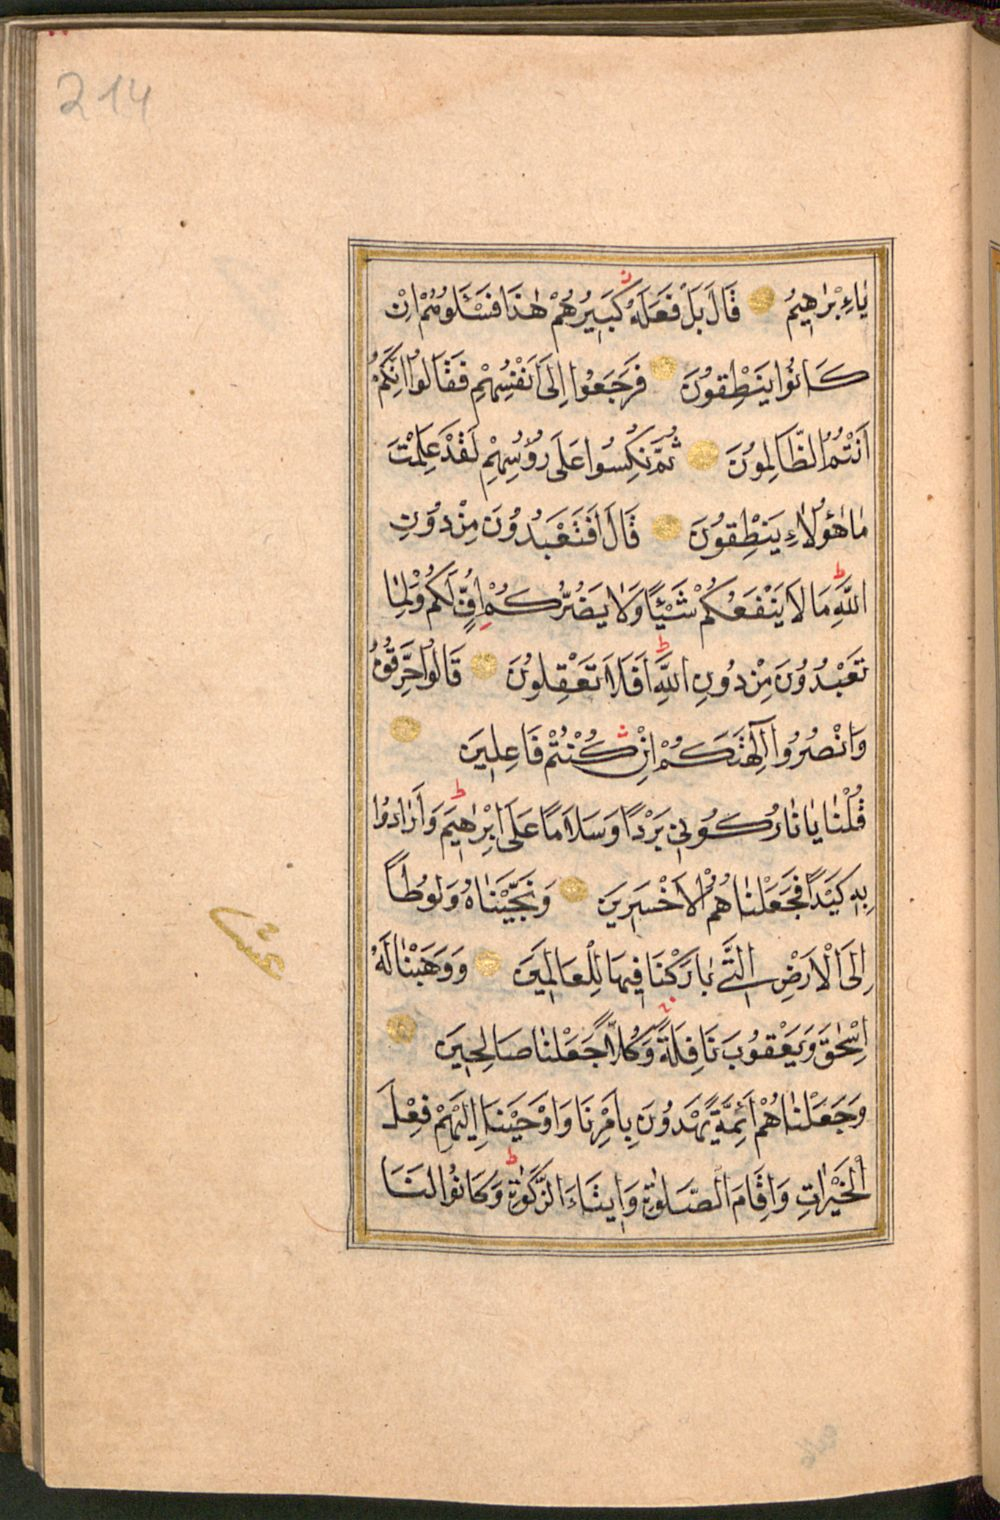 214
يَاءِبْرٰهِيمُ قَالَ بَلْ فَعَلَهُ كَبِيرُهُمْ هٰذَا فَسْـَٔلُوهُمْ اِنْ
كَانُوا يَنْطِقُونَ فَرَجَعُوا اِلٰى اَنْفُسِهِمْ فَقَالُوا اِنَّكُمْ
اَنْتُمُ الظَّالِمُونَ ثُمَّ نُكِسُوا عَلٰى رُؤُسِهِمْ لَقَدْ عَلِمْتَ
مَا هٰؤُلَاءِ يَنْطِقُونَ قَالَ اَفَتَعْبُدُونَ مِنْ دُونِ
اللّٰهِ مَا لَا يَنْفَعُكُمْ شَيْئًا وَلَا يَضُرُّكُمْ اُفٍّ لَكُمْ وَلِمَا
تَعْبُدُونَ مِنْ دُونِ اللّٰهِ اَفَلَا تَعْقِلُونَ قَالُوا حَرِّقُوهُ
وَانْصُرُوا اٰلِهَتَكُمْ اِنْ كُنْتُمْ فَاعِلِينَ
قُلْنَا يَا نَارُ كُونِي بَرْدًا وَسَلَامًا عَلٰى اِبْرٰهِيمَ وَاَرَادُوا
بِهِ كَيْدًا فَجَعَلْنَاهُمُ الْاَخْسَرِينَ وَنَجَّيْنَاهُ وَلُوطًا
اِلَى الْاَرْضِ الَّتِي بَارَكْنَا فِيهَا لِلْعَالَمِينَ وَوَهَبْنَا لَهُ
عشر
اِسْحٰقَ وَيَعْقُوبَ نَافِلَةً وَكُلًّا جَعَلْنَا صَالِحِينَ
وَجَعَلْنَاهُمْ اَئِمَّةً يَهْدُونَ بِاَمْرِنَا وَاَوْحَيْنَا اِلَيْهِمْ فِعْلَ
الْخَيْرَاتِ وَاِقَامَ الصَّلٰوةِ وَاِيتَاءَ الزَّكٰوةِ وَكَانُوا لَنَا